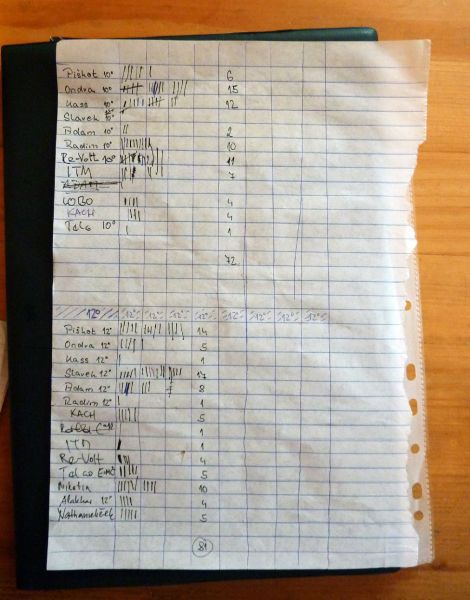 Pišhot 10° 6
Ondra 10° 15
Kass 10° 12
Slavek 10°
Adam 10° 2
Radim 10° 10
Re-Volt 10° 11
ITM 7
LOBO 4
KACH 4
10° 1
72
12° 12° 12° 12° 12° 12° 12° 12° 12°
Pišhot 12° 14
Ondra 12° 5
Kass 12° 1
Slavek 12° 17
Adam 12° 8
Radim 12° 1
KACH 5
1
ITM 1
Re-Volt 4
5
Nikotin 10
12° 4
5
81